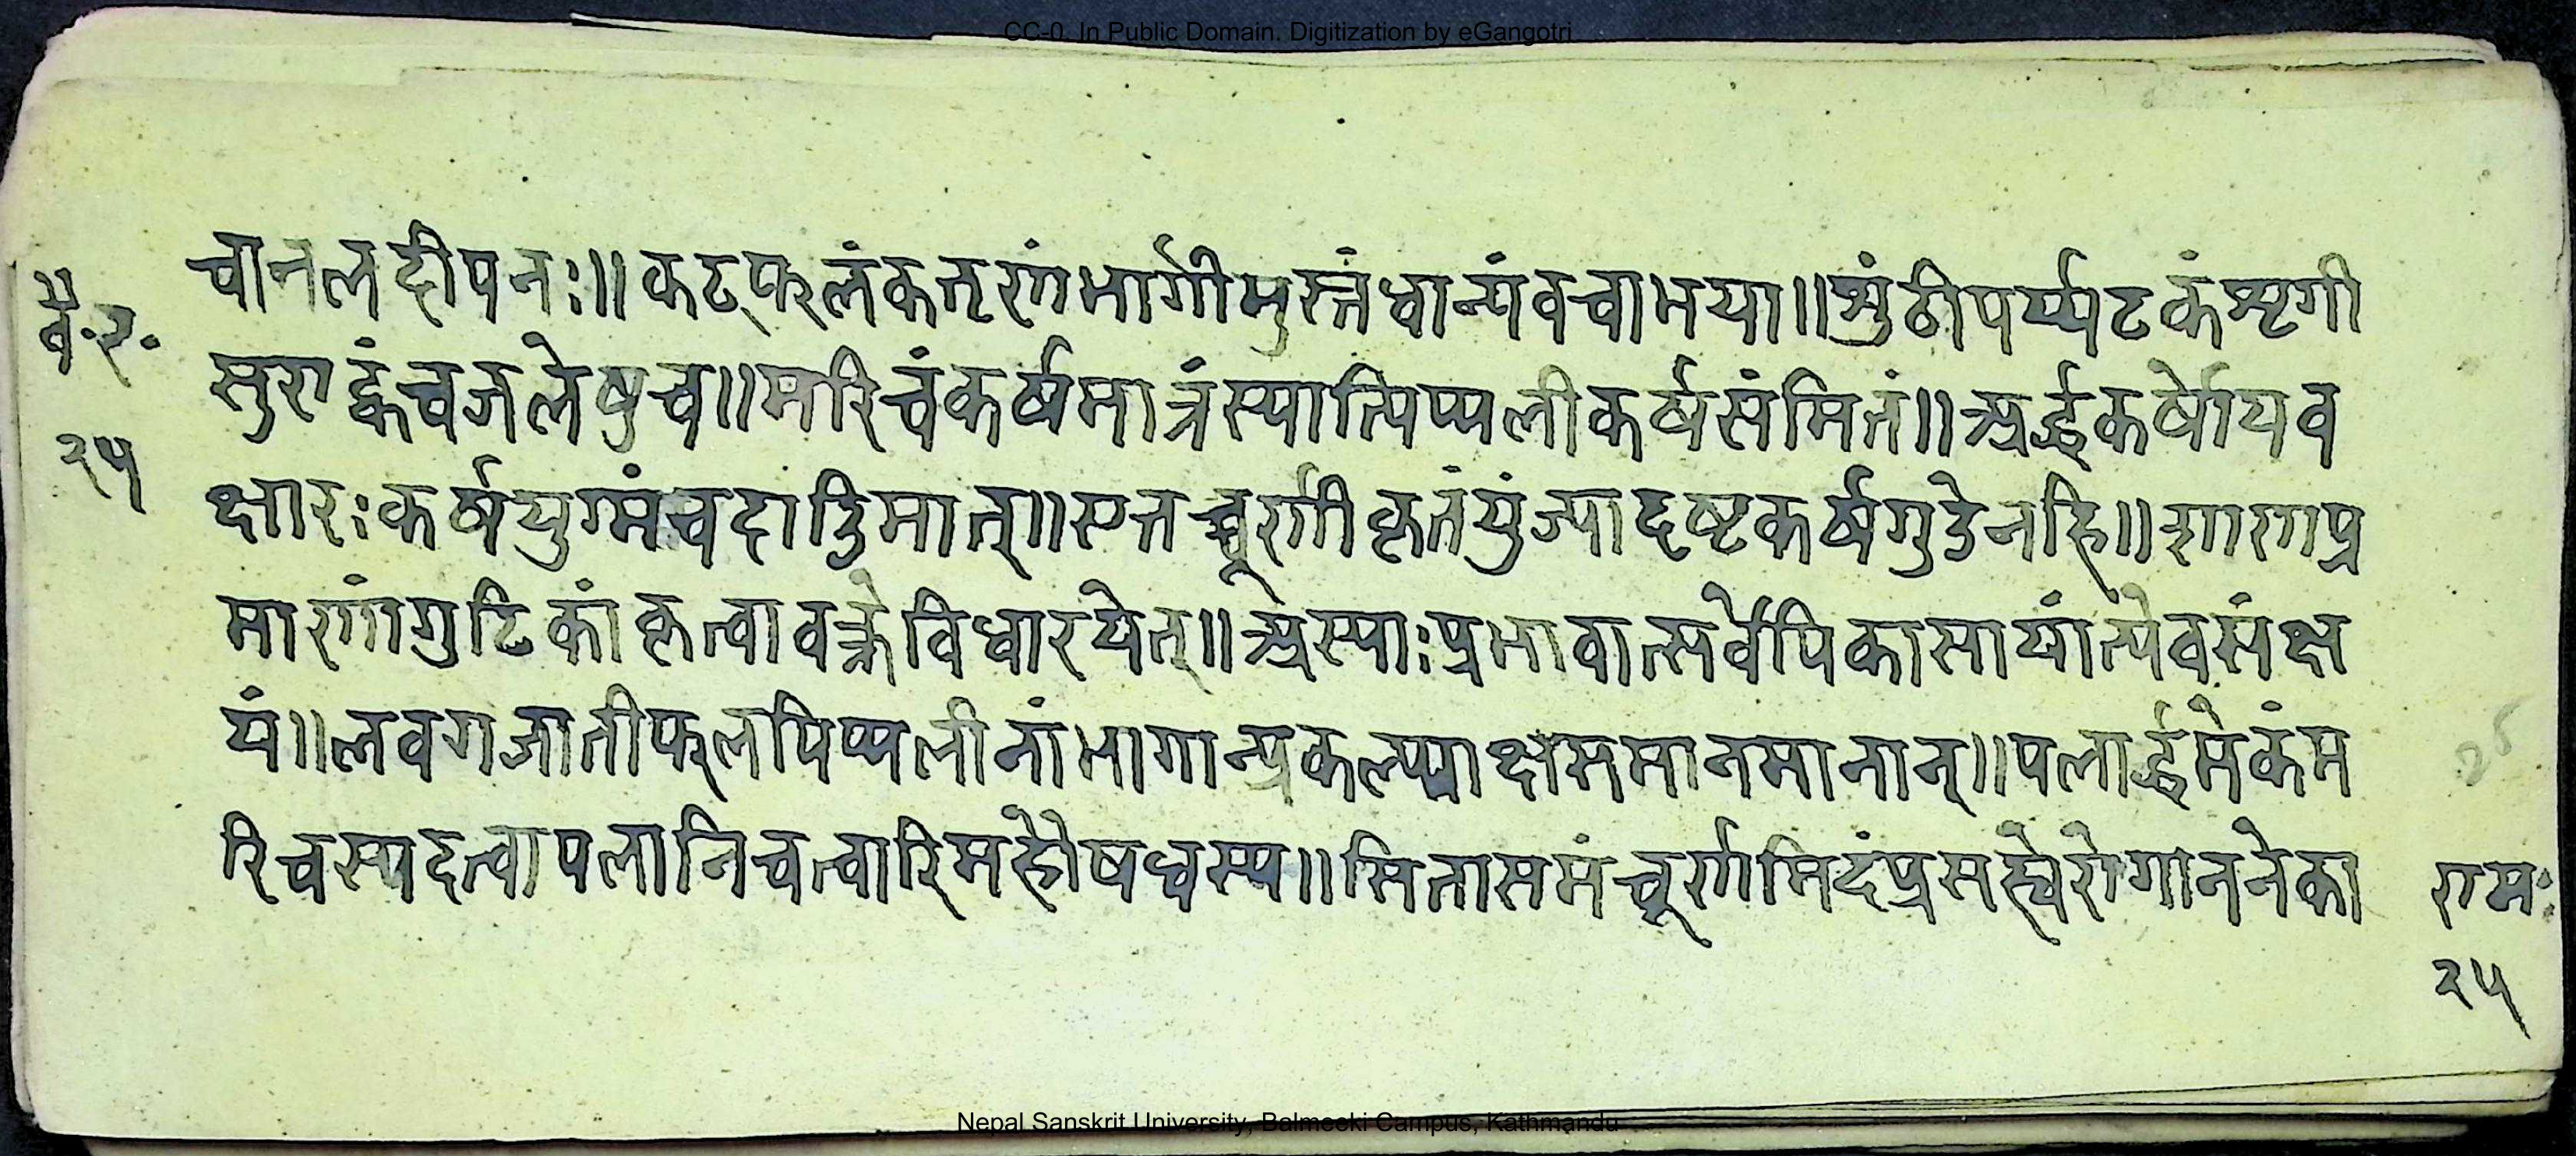 CC-0. In Public Domain. Digitization by eGangotri
चानलदीपनः॥कट्फलंकतृणंभार्गीमुस्तंधान्यंवचाभया॥शुंठीपर्प्पटकंशृगी
वै.र.
सुराह्वंचजलेषुच॥मरिचंकर्षमात्रंस्यात्पिप्पलीकर्षसंमितं॥अर्द्धकर्षोयव
२५
क्षारःकर्षयुग्मंचदाडिमात्॥एतच्चूर्णीकृतंयुंज्यादष्टकर्षगुडेनहि॥शाणप्र
माणांगुटिकांकृत्वावक्त्रेविधारयेत्॥अस्याःप्रभावात्सर्वेपिकासायांत्येवसंक्ष
यं॥लवगजातीफलपिप्पलीनांभागान्प्रकल्प्याक्षसमानमानान्॥पलार्द्धमेकंम
रिचस्यदत्वापलानिचत्वारिमहौषधस्य॥सितासमंचूर्णमिदंप्रसह्यरोगाननेका
रामः
२५
Nepal Sanskrit University, Balmeeki Campus, Kathmandu